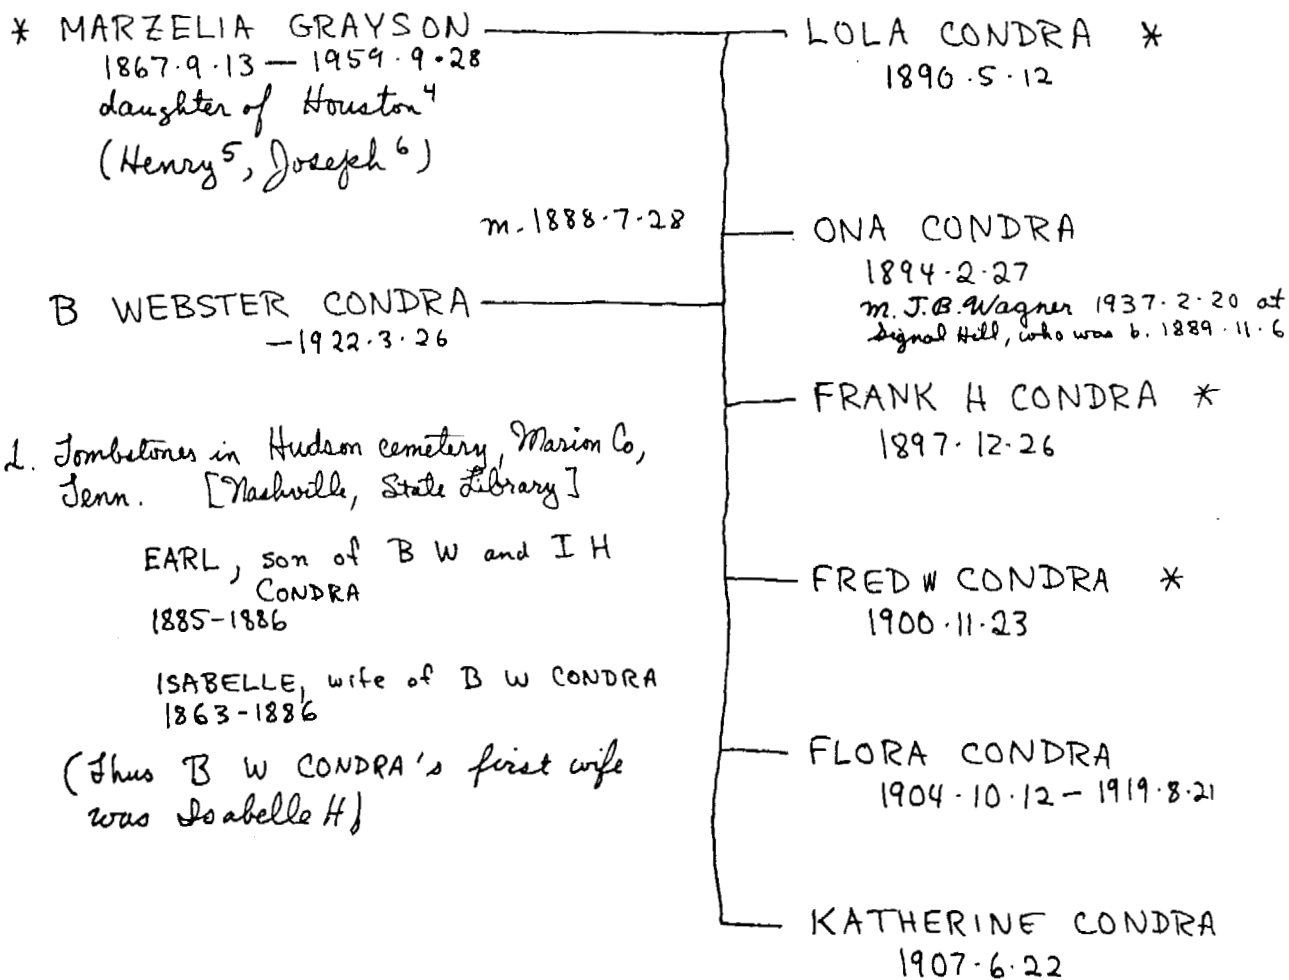 * MARZELIA GRAYSON
1867.9.13 — 1959.9.28
daughter of Houston⁴
(Henry⁵, Joseph⁶)
m. 1888.7.28
B WEBSTER CONDRA
—1922.3.26
1. Tombstones in Hudson cemetery, Marion Co,
Tenn. [Nashville, State Library]
EARL, son of B W and I H
CONDRA
1885-1886
ISABELLE, wife of B W CONDRA
1863-1886
(Thus B W CONDRA's first wife
was Isabelle H)
LOLA CONDRA *
1890.5.12
ONA CONDRA
1894.2.27
m. J.B. Wagner 1937.2.20 at
Signal Hill, who was b. 1889.11.6
FRANK H CONDRA *
1897.12.26
FRED W CONDRA *
1900.11.23
FLORA CONDRA
1904.10.12 — 1919.8.21
KATHERINE CONDRA
1907.6.22